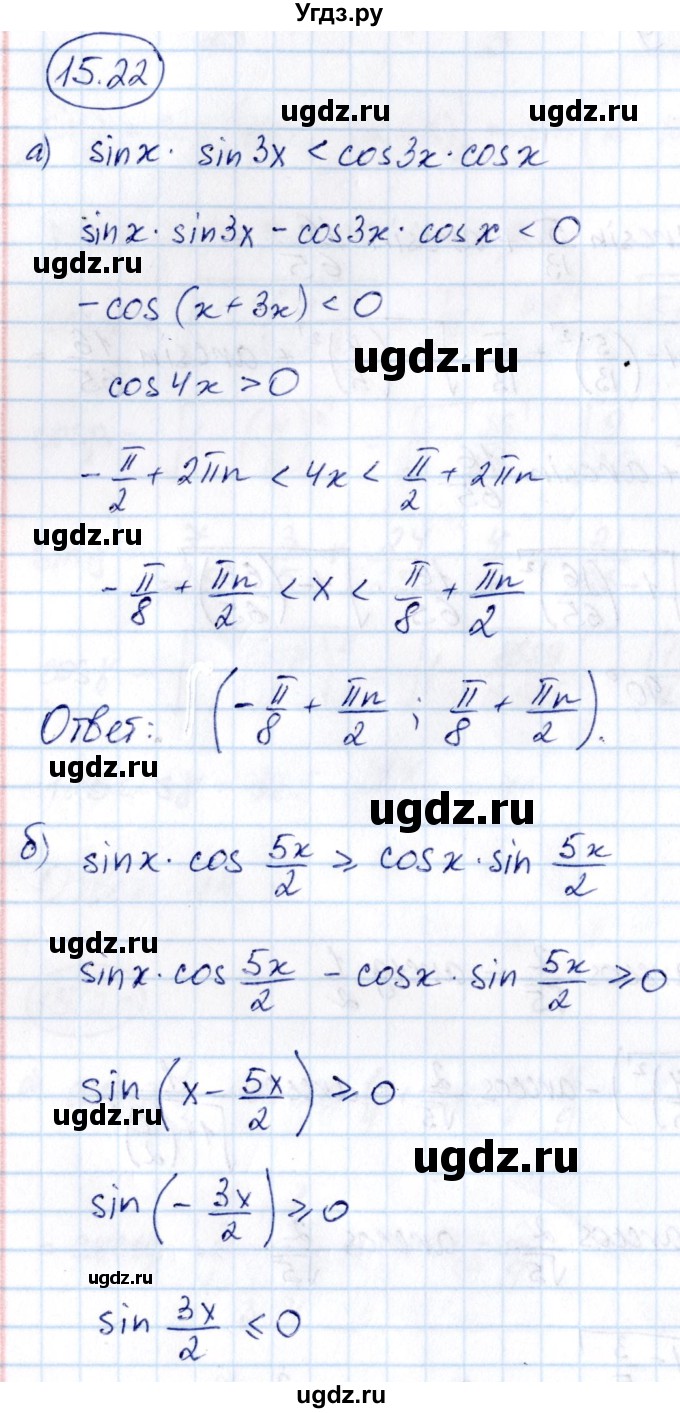 Угдз.ру
15.22
ugdz.ru
а) sinx · sin3x < cos3x · cosx
sinx · sin3x - cos3x · cosx < 0
ugdz.ru
-cos (x + 3x) < 0
ugdz.ru
cos4x > 0
-π/2 + 2πn < 4x < π/2 + 2πn
ugdz.ru
-π/8 + πn/2 < x < π/8 + πn/2
Ответ: (-π/8 + πn/2 ; π/8 + πn/2).
ugdz.ru
ugdz.ru
б) sinx · cos 5x/2 ⩾ cosx · sin 5x/2
ugdz.ru
sinx · cos 5x/2 - cosx · sin 5x/2 ⩾ 0
sin (x - 5x/2) ⩾ 0
ugdz.ru
ugdz.ru
sin (- 3x/2) ⩾ 0
ugdz.ru
sin 3x/2 ⩽ 0
ugdz.ru